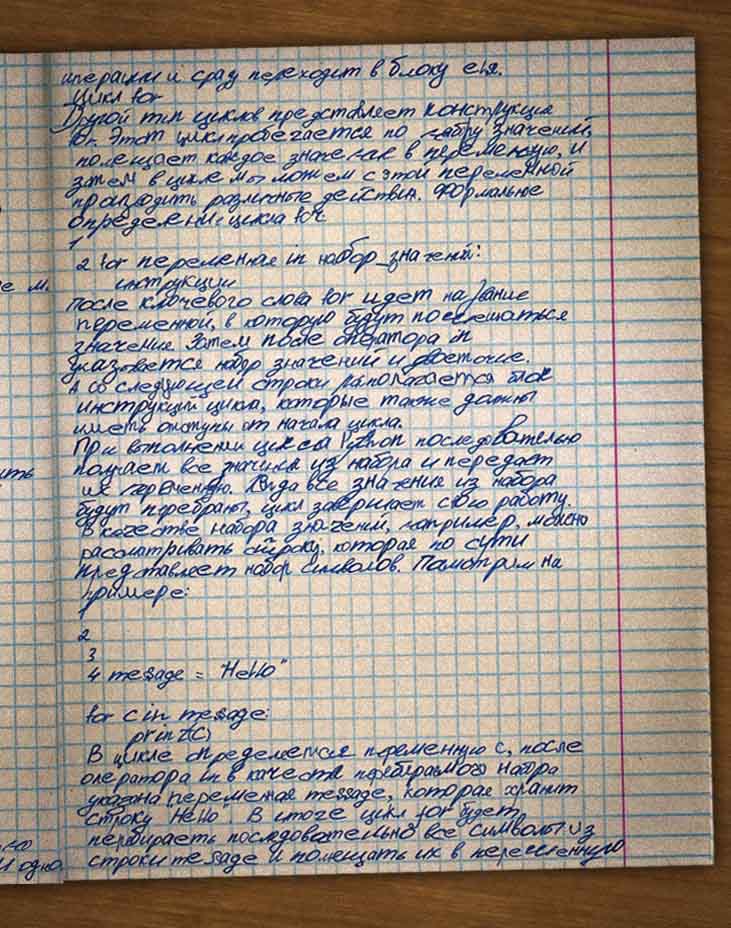 итерации и сразу переходит в блоку else.
Цикл for
Другой тип циклов представляет конструкция
for. Этот цикл пробегается по набору значений,
помещает каждое значение в переменную, и
затем в цикле мы можем с этой переменной
производить различные действия. Формальное
определение цикла for:
1
2 for переменная in набор_значений:
инструкции
После ключевого слова for идет название
переменной, в которую будут помещаться
значения. Затем после оператора in
указывается набор значений и двоеточие.
А со следующей строки располагается блок
инструкций цикла, которые также должны
иметь отступы от начала цикла.
При выполнении цикла Python последовательно
получает все значения из набора и передает
их переменную. Когда все значения из набора
будут перебраны, цикл завершает свою работу.
В качестве набора значений, например, можно
рассматривать строку, которая по сути
представляет набор символов. Посмотрим на
примере:
1
2
3
4 message = "Hello"
for c in message:
print(c)
В цикле определяется переменную c, после
оператора in в качестве перебираемого набора
указана переменная message, которая хранит
строку "Hello". В итоге цикл for будет
перебирать последовательно все символы из
строки message и помещать их в переменную
е м.
ить
и одно